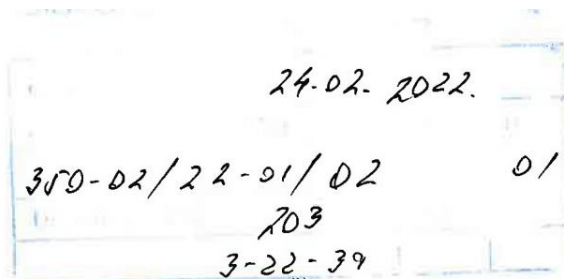 24-02-2022.
350-02/22-01/02 01
203
3-22-39